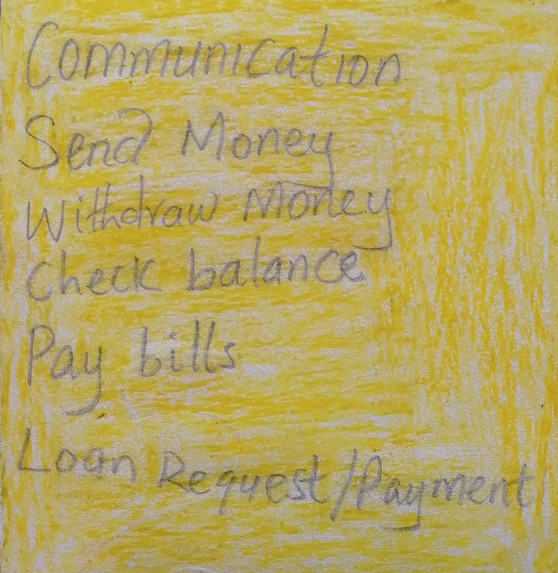 Communication
Send Money
Withdraw Money
Check balance
Pay bills
Loan Request/Payment